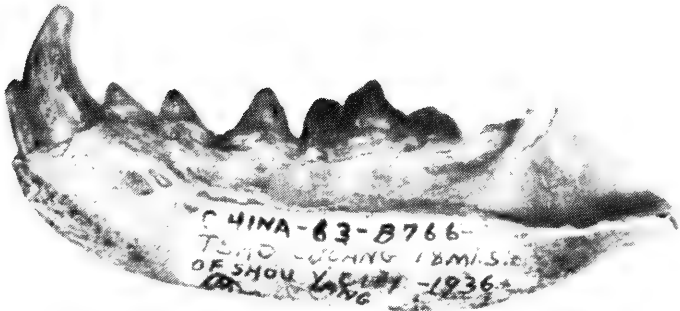 CHINA-63-B766-
TSAO CHUANG 18MI.S.E.
OF SHOU CITY -1936-
YANG